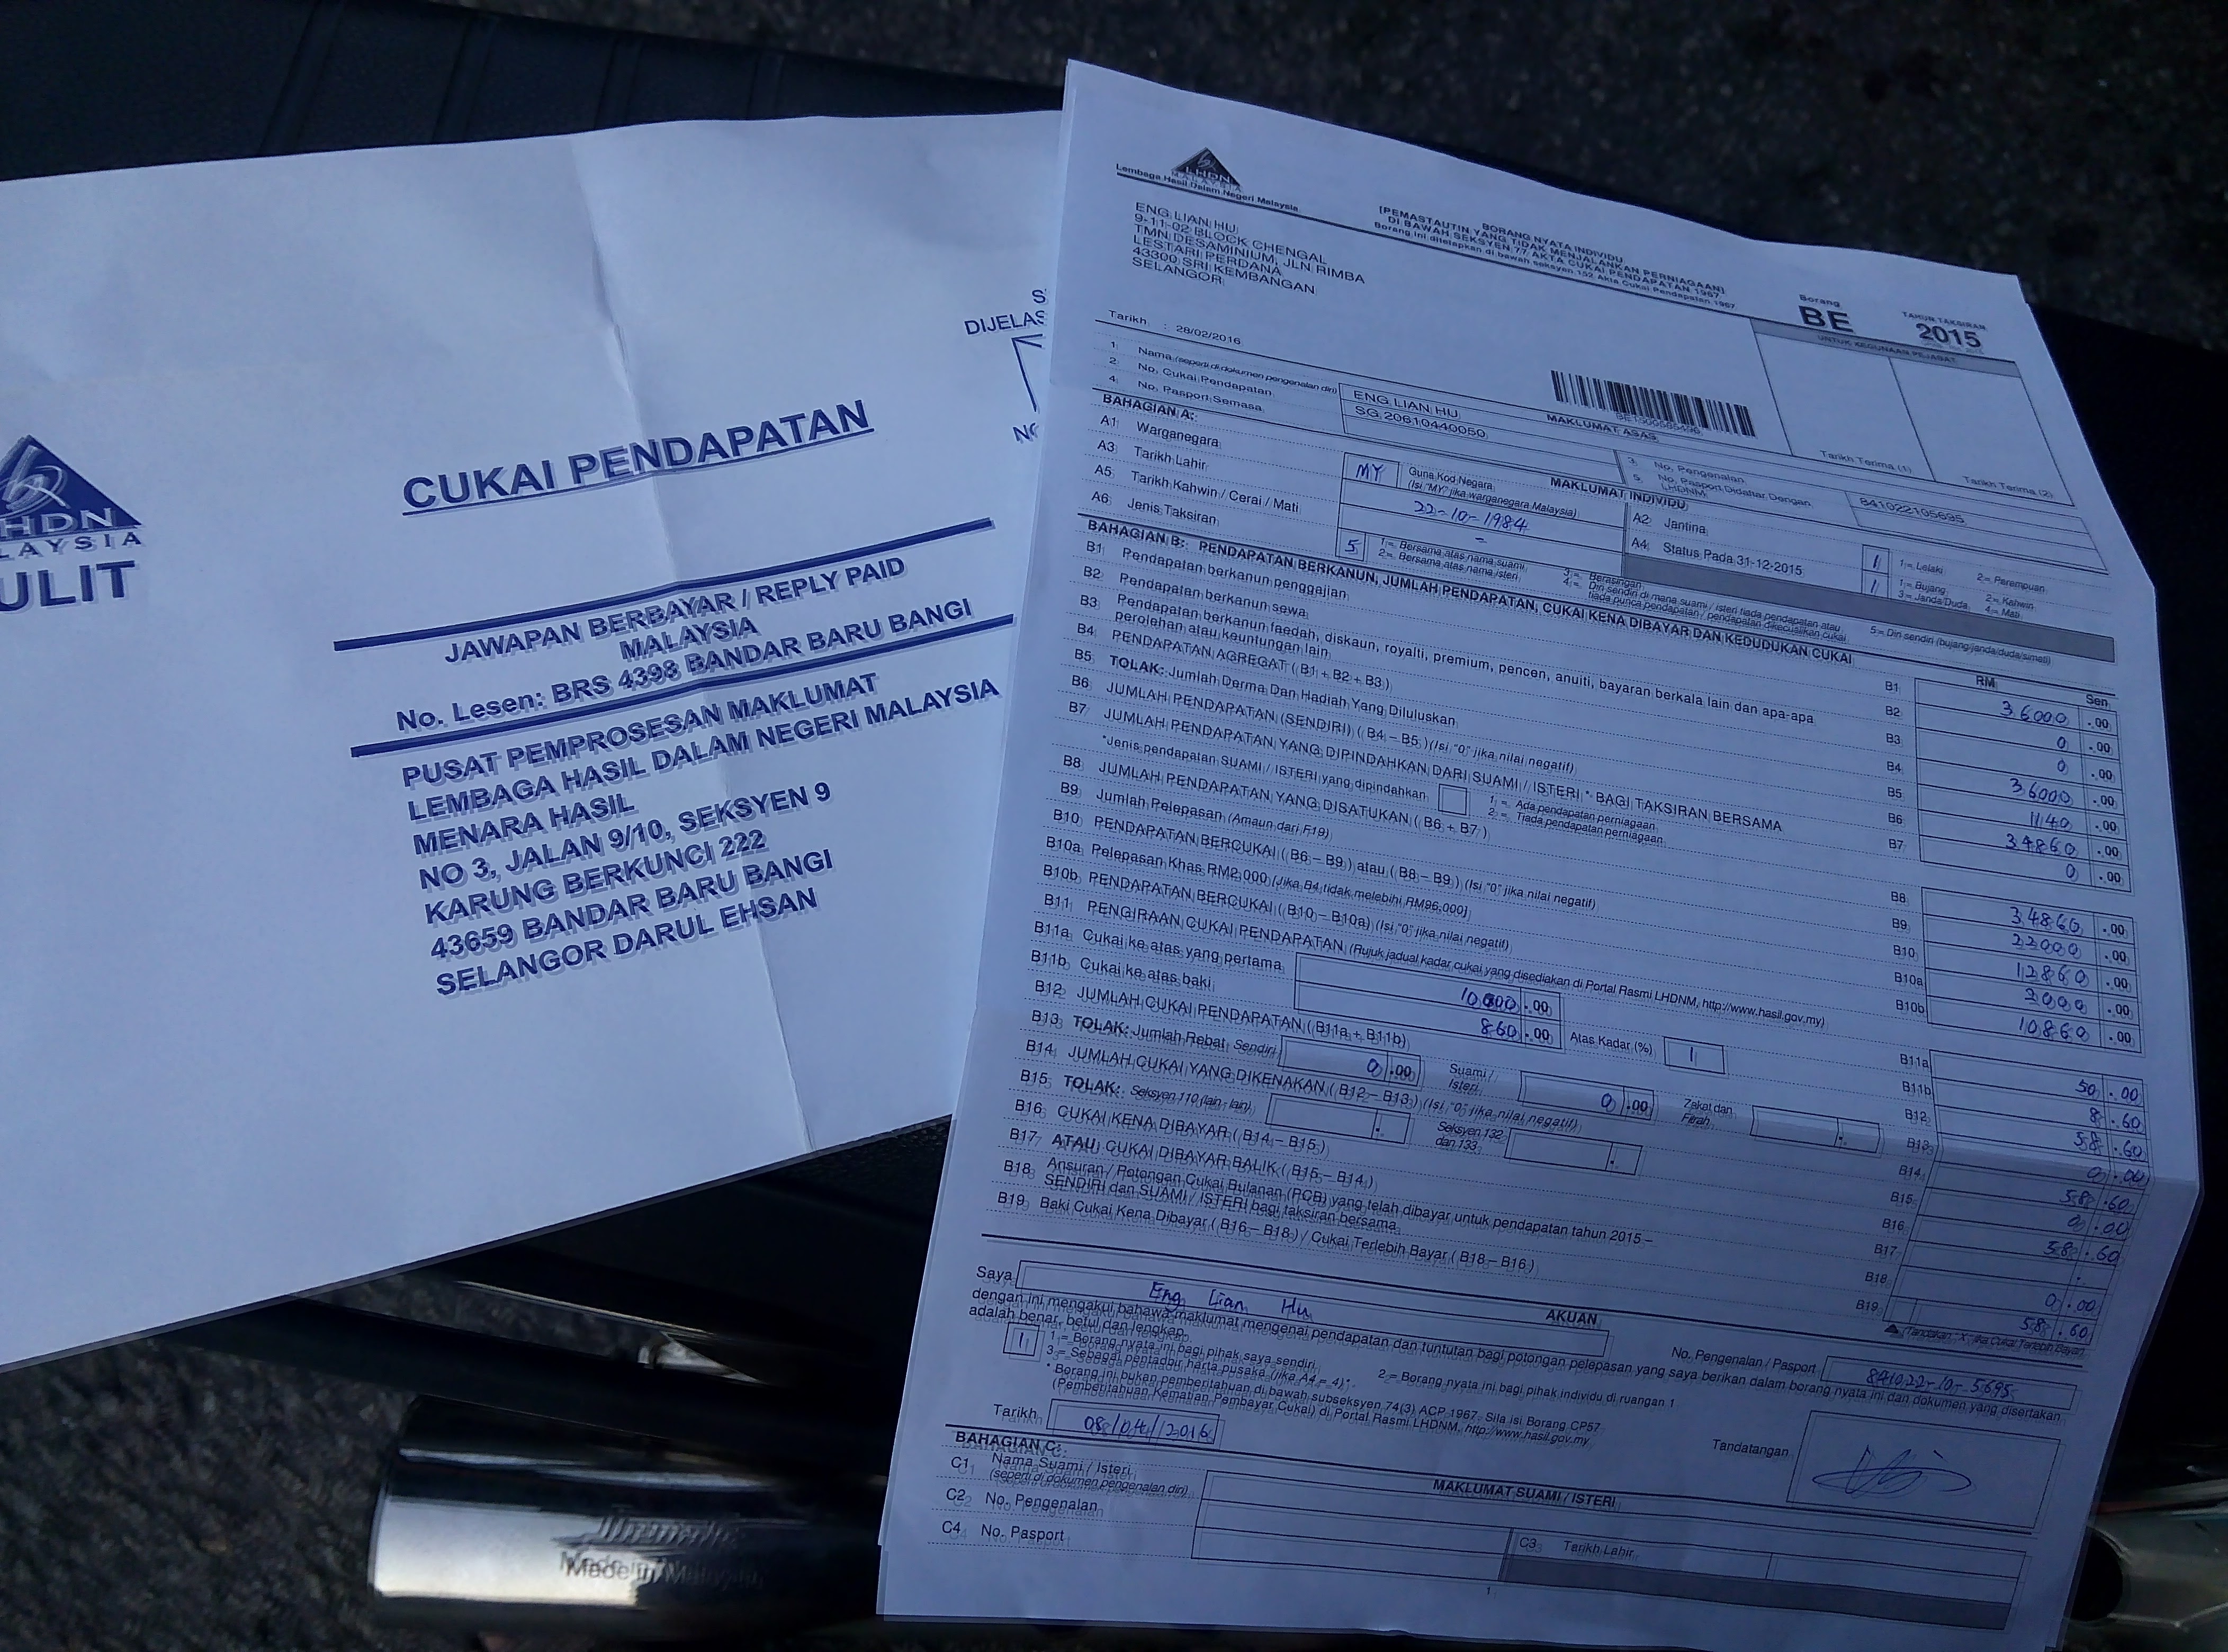 LHDN
MALAYSIA
SULIT
CUKAI PENDAPATAN
JAWAPAN BERBAYAR / REPLY PAID
MALAYSIA
No. Lesen: BRS 4398 BANDAR BARU BANGI
PUSAT PEMPROSESAN MAKLUMAT
LEMBAGA HASIL DALAM NEGERI MALAYSIA
MENARA HASIL
NO 3, JALAN 9/10, SEKSYEN 9
KARUNG BERKUNCI 222
43659 BANDAR BARU BANGI
SELANGOR DARUL EHSAN
DIJELAS
LHDN
MALAYSIA
Lembaga Hasil Dalam Negeri Malaysia
BORANG NYATA INDIVIDU
(PEMASTAUTIN YANG TIDAK MENJALANKAN PERNIAGAAN)
DI BAWAH SEKSYEN 77 AKTA CUKAI PENDAPATAN 1967
Borang ini ditetapkan di bawah seksyen 152 Akta Cukai Pendapatan 1967
Borang BE
TAHUN TAKSIRAN 2015
UNTUK KEGUNAAN PEJABAT
Tarikh Terima (1) Tarikh Terima (2)
ENG LIAN HU
9-11-02 BLOCK CHENGAL
TMN DESAMINIUM, JLN RIMBA
LESTARI PERDANA
43300 SRI KEMBANGAN
SELANGOR
Tarikh : 28/02/2016
MAKLUMAT ASAS
1 Nama (seperti di dokumen pengenalan diri) ENG LIAN HU
2 No. Cukai Pendapatan SG 20610440050 3 No. Pengenalan 841022105695
4 No. Pasport Semasa 5 No. Pasport Didaftar Dengan LHDNM
BAHAGIAN A: MAKLUMAT INDIVIDU
A1 Warganegara MY Guna Kod Negara (Isi "MY" jika warganegara Malaysia) A2 Jantina 1 1 = Lelaki 2 = Perempuan
A3 Tarikh Lahir 22-10-1984 A4 Status Pada 31-12-2015 1 1 = Bujang 2 = Kahwin 3 = Janda/Duda 4 = Mati
A5 Tarikh Kahwin / Cerai / Mati -
A6 Jenis Taksiran 5 1 = Bersama atas nama suami 2 = Bersama atas nama isteri 3 = Berasingan 4 = Diri sendiri di mana suami / isteri tiada pendapatan atau tiada punca pendapatan / pendapatan dikecualikan cukai 5 = Diri sendiri (bujang/janda/duda/simati)
BAHAGIAN B: PENDAPATAN BERKANUN, JUMLAH PENDAPATAN, CUKAI KENA DIBAYAR DAN KEDUDUKAN CUKAI
RM Sen
B1 Pendapatan berkanun penggajian B1 36000 .00
B2 Pendapatan berkanun sewa B2 0 .00
B3 Pendapatan berkanun faedah, diskaun, royalti, premium, pencen, anuiti, bayaran berkala lain dan apa-apa
perolehan atau keuntungan lain B3 0 .00
B4 PENDAPATAN AGREGAT ( B1 + B2 + B3 ) B4 36000 .00
B5 TOLAK: Jumlah Derma Dan Hadiah Yang Diluluskan B5 1140 .00
B6 JUMLAH PENDAPATAN (SENDIRI) ( B4 – B5 ) (Isi "0" jika nilai negatif) B6 34860 .00
B7 JUMLAH PENDAPATAN YANG DIPINDAHKAN DARI SUAMI / ISTERI * BAGI TAKSIRAN BERSAMA B7 0 .00
*Jenis pendapatan SUAMI / ISTERI yang dipindahkan 1 = Ada pendapatan perniagaan 2 = Tiada pendapatan perniagaan
B8 JUMLAH PENDAPATAN YANG DISATUKAN ( B6 + B7 ) B8 34860 .00
B9 Jumlah Pelepasan (Amaun dari F19) B9 22000 .00
B10 PENDAPATAN BERCUKAI ( B6 – B9 ) atau ( B8 – B9 ) (Isi "0" jika nilai negatif) B10 12860 .00
B10a Pelepasan Khas RM2,000 [Jika B4 tidak melebihi RM96,000] B10a 2000 .00
B10b PENDAPATAN BERCUKAI ( B10 – B10a) (Isi "0" jika nilai negatif) B10b 10860 .00
B11 PENGIRAAN CUKAI PENDAPATAN (Rujuk jadual kadar cukai yang disediakan di Portal Rasmi LHDNM, http://www.hasil.gov.my)
B11a Cukai ke atas yang pertama 10000 .00 B11a 50 .00
B11b Cukai ke atas baki 860 .00 Atas Kadar (%) 1 B11b 8 .60
B12 JUMLAH CUKAI PENDAPATAN ( B11a + B11b) B12 58 .60
B13 TOLAK: Jumlah Rebat Sendiri 0 .00 Suami / Isteri 0 .00 Zakat dan Fitrah B13 0 .00
B14 JUMLAH CUKAI YANG DIKENAKAN ( B12 – B13 ) (Isi "0" jika nilai negatif) B14 58 .60
B15 TOLAK: Seksyen 110 (lain - lain) Seksyen 132 dan 133 B15 0 .00
B16 CUKAI KENA DIBAYAR ( B14 – B15 ) B16 58 .60
B17 ATAU: CUKAI DIBAYAR BALIK ( B15 – B14 ) B17
B18 Ansuran / Potongan Cukai Bulanan (PCB) yang telah dibayar untuk pendapatan tahun 2015 –
SENDIRI dan SUAMI / ISTERI bagi taksiran bersama B18 0 .00
B19 Baki Cukai Kena Dibayar ( B16 – B18 ) / Cukai Terlebih Bayar ( B18 – B16 ) B19 58 .60
(Tandakan "X" jika Cukai Terlebih Bayar)
AKUAN
Saya Eng Lian Hu No. Pengenalan / Pasport 841022-10-5695
dengan ini mengakui bahawa maklumat mengenai pendapatan dan tuntutan bagi potongan pelepasan yang saya berikan dalam borang nyata ini dan dokumen yang disertakan
adalah benar, betul dan lengkap.
1 1 = Borang nyata ini bagi pihak saya sendiri 2 = Borang nyata ini bagi pihak individu di ruangan 1
3 = Sebagai pentadbir harta pusaka (jika A4 = 4)*
* Borang ini bukan pemberitahuan di bawah subseksyen 74(3) ACP 1967. Sila isi Borang CP57
(Pemberitahuan Kematian Pembayar Cukai) di Portal Rasmi LHDNM, http://www.hasil.gov.my
Tarikh 08/04/2016 Tandatangan
BAHAGIAN C: MAKLUMAT SUAMI / ISTERI
C1 Nama Suami / Isteri
(seperti di dokumen pengenalan diri)
C2 No. Pengenalan
C4 No. Pasport C3 Tarikh Lahir
1
Made in Malaysia